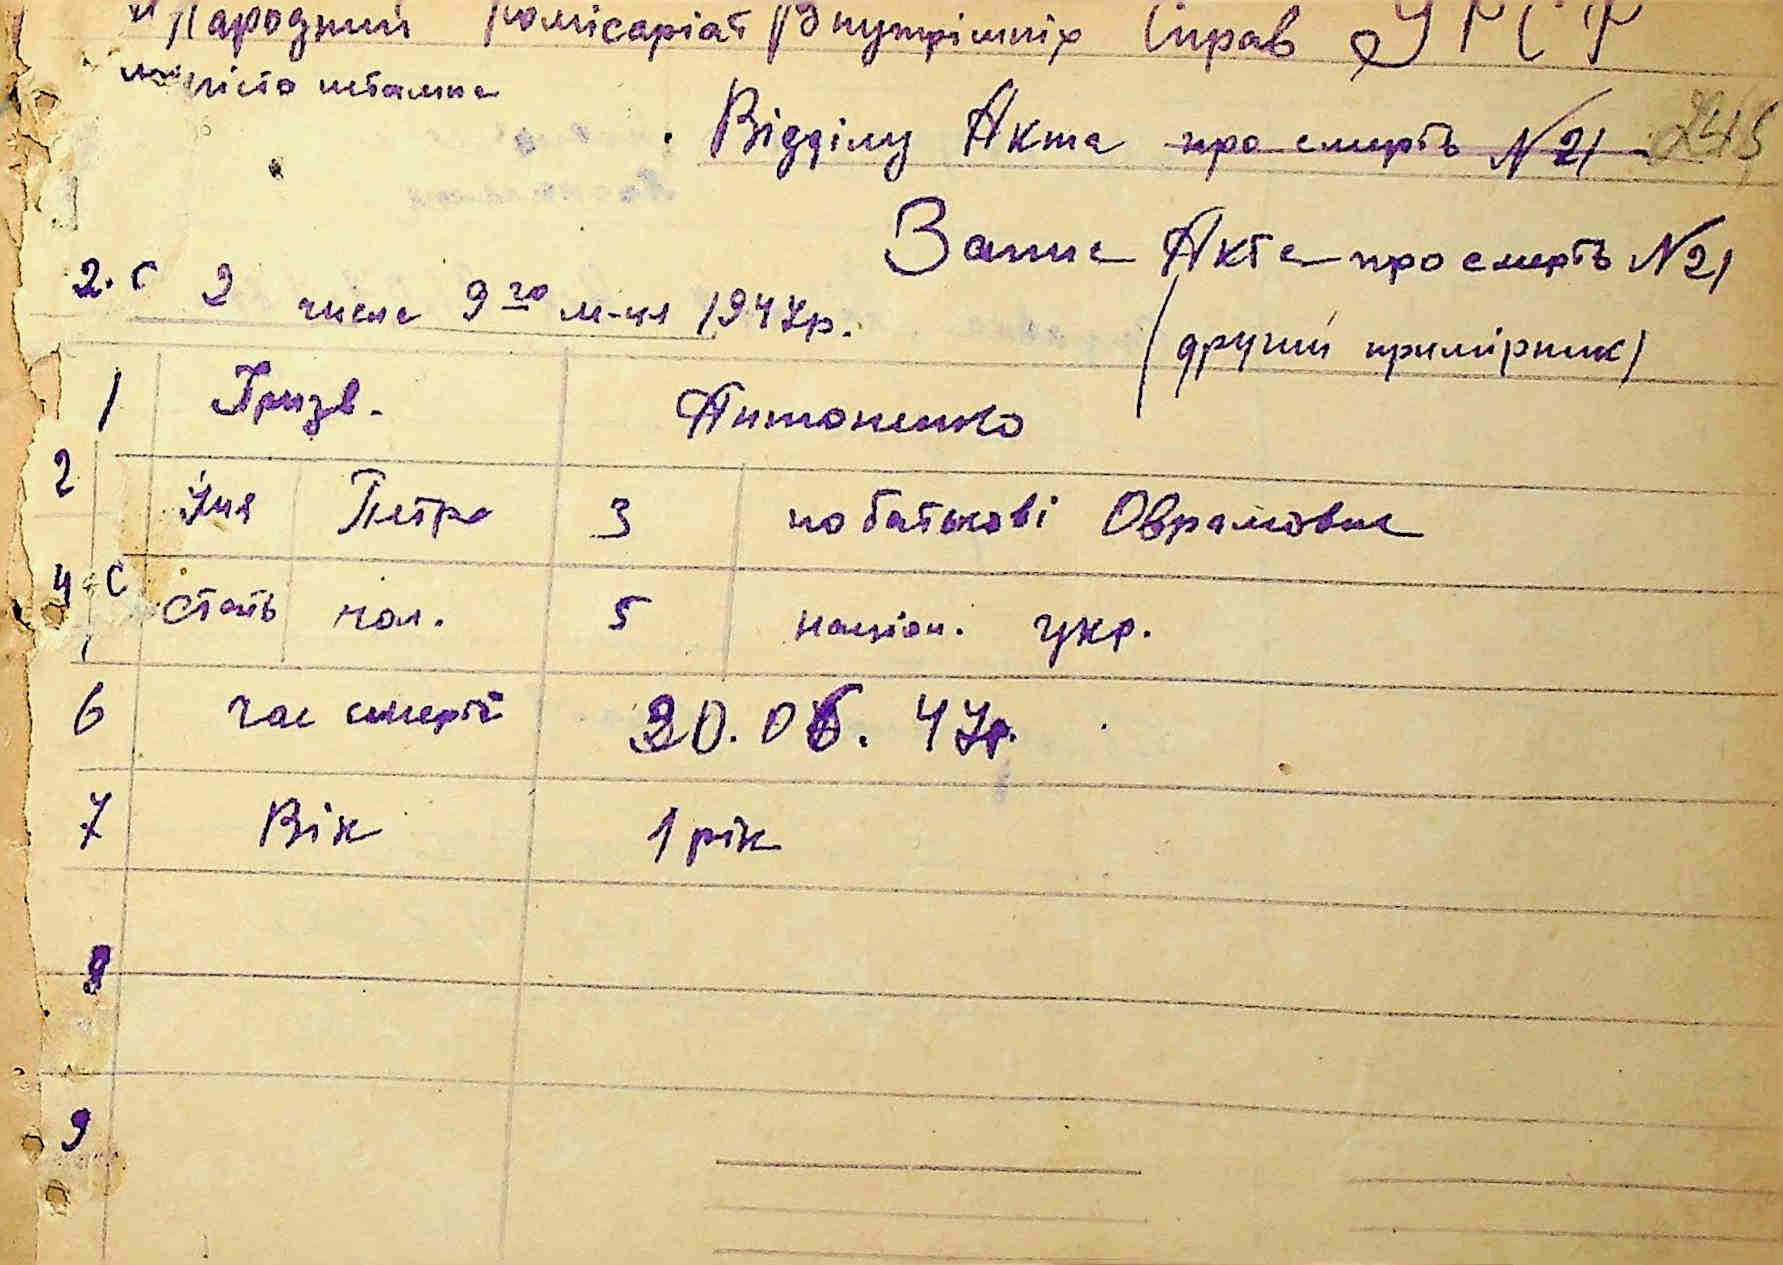 Народний Комісаріат Внутрішніх Справ УРСР
місто штампа
Відділу Акта про смерть N 21 245
Запис Акта про смерть N 21
2. с 2 числа 9го м-ця 1947р.
(другий примірник)
1 Призв. Антоненко
2 Імя Петро 3 по батькові Оврамович
4 с Стать чол. 5 націон. укр.
6 час смерті 20.06. 47р.
7 Вік 1 рік
8
9